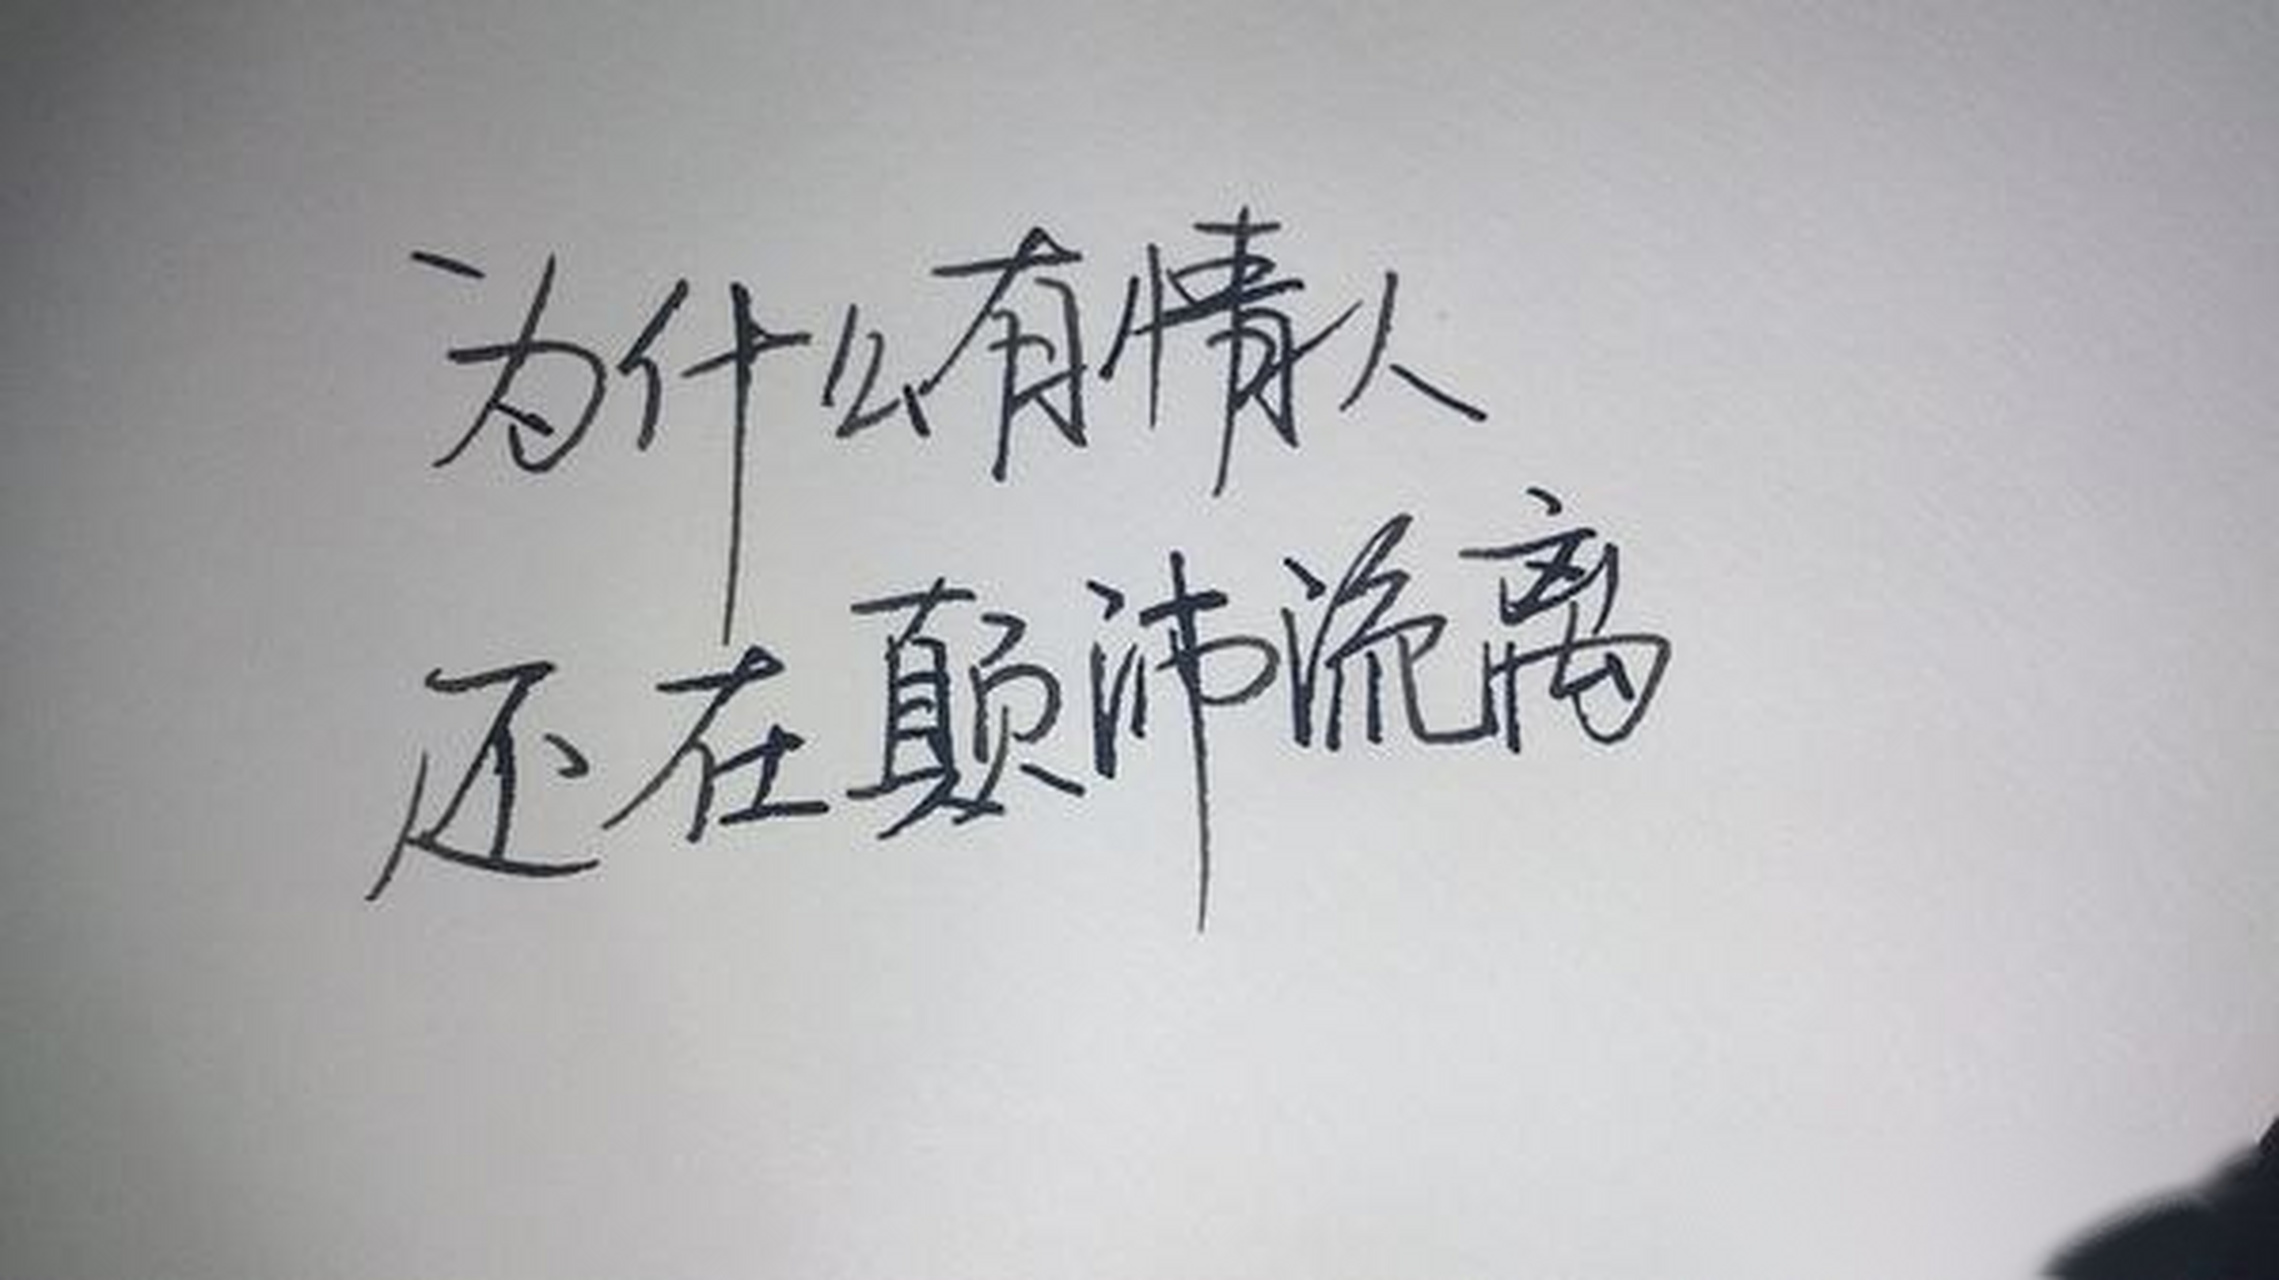 为什么有情人
还在颠沛流离